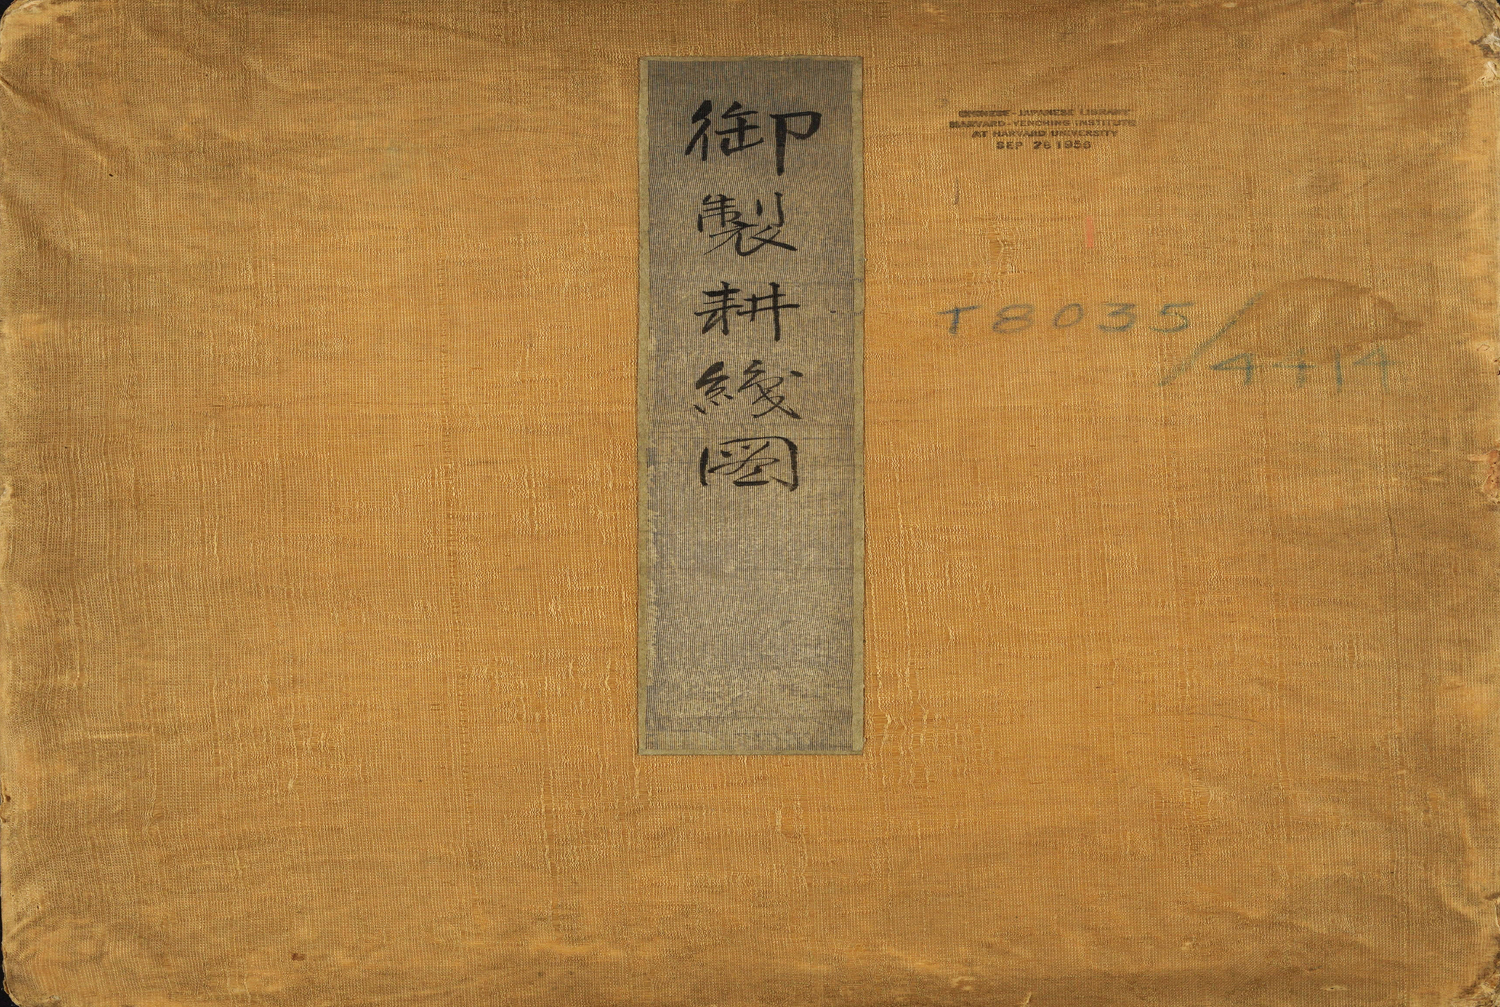 御製耕織圖
CHINESE-JAPANESE LIBRARY
HARVARD-YENCHING INSTITUTE
AT HARVARD UNIVERSITY
SEP 26 1950
T8035/
4414